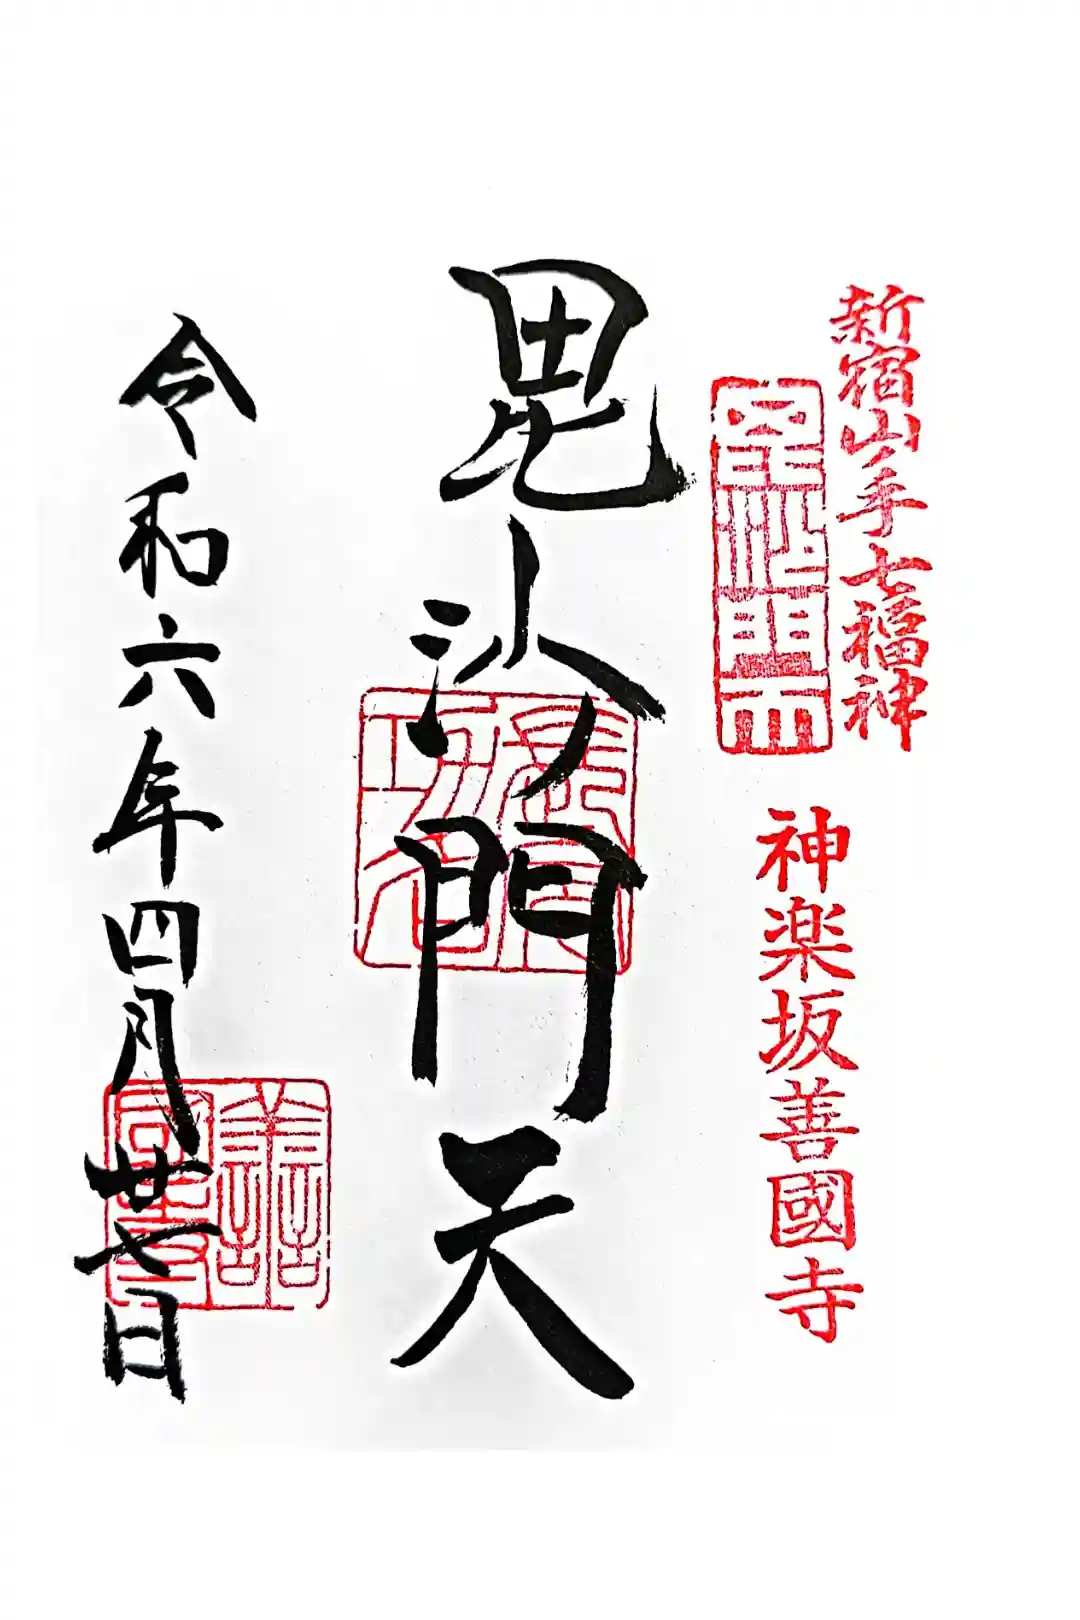 新宿山ノ手七福神
神楽坂善國寺
毘沙門天
令和六年四月廿七日